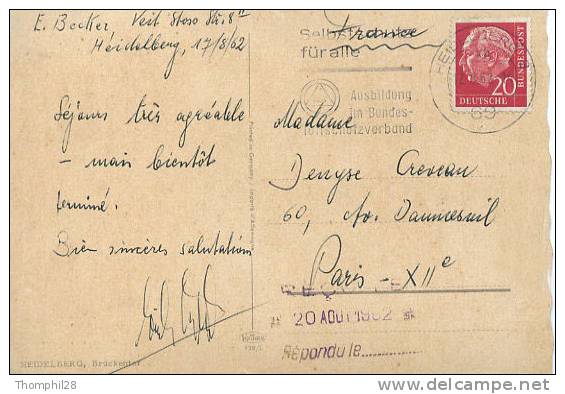 E. Becker Veit Stoss Str. 8 II
Heidelberg, 17/8/62
Séjour très agréable
– mais bientôt
terminé.
Bien sincères salutations
France
Selbstschutz
für alle
Ausbildung
im Bundes-
luftschutzverband
HEIDELBERG
69
20
DEUTSCHE
BUNDESPOST
Madame
Denyse Creveau
60, Av. Daumesnil
Paris - XIIe
20 AOUT 1962
Répondu le
HEIDELBERG, Brückentor
Thomphil28
delcampe.net